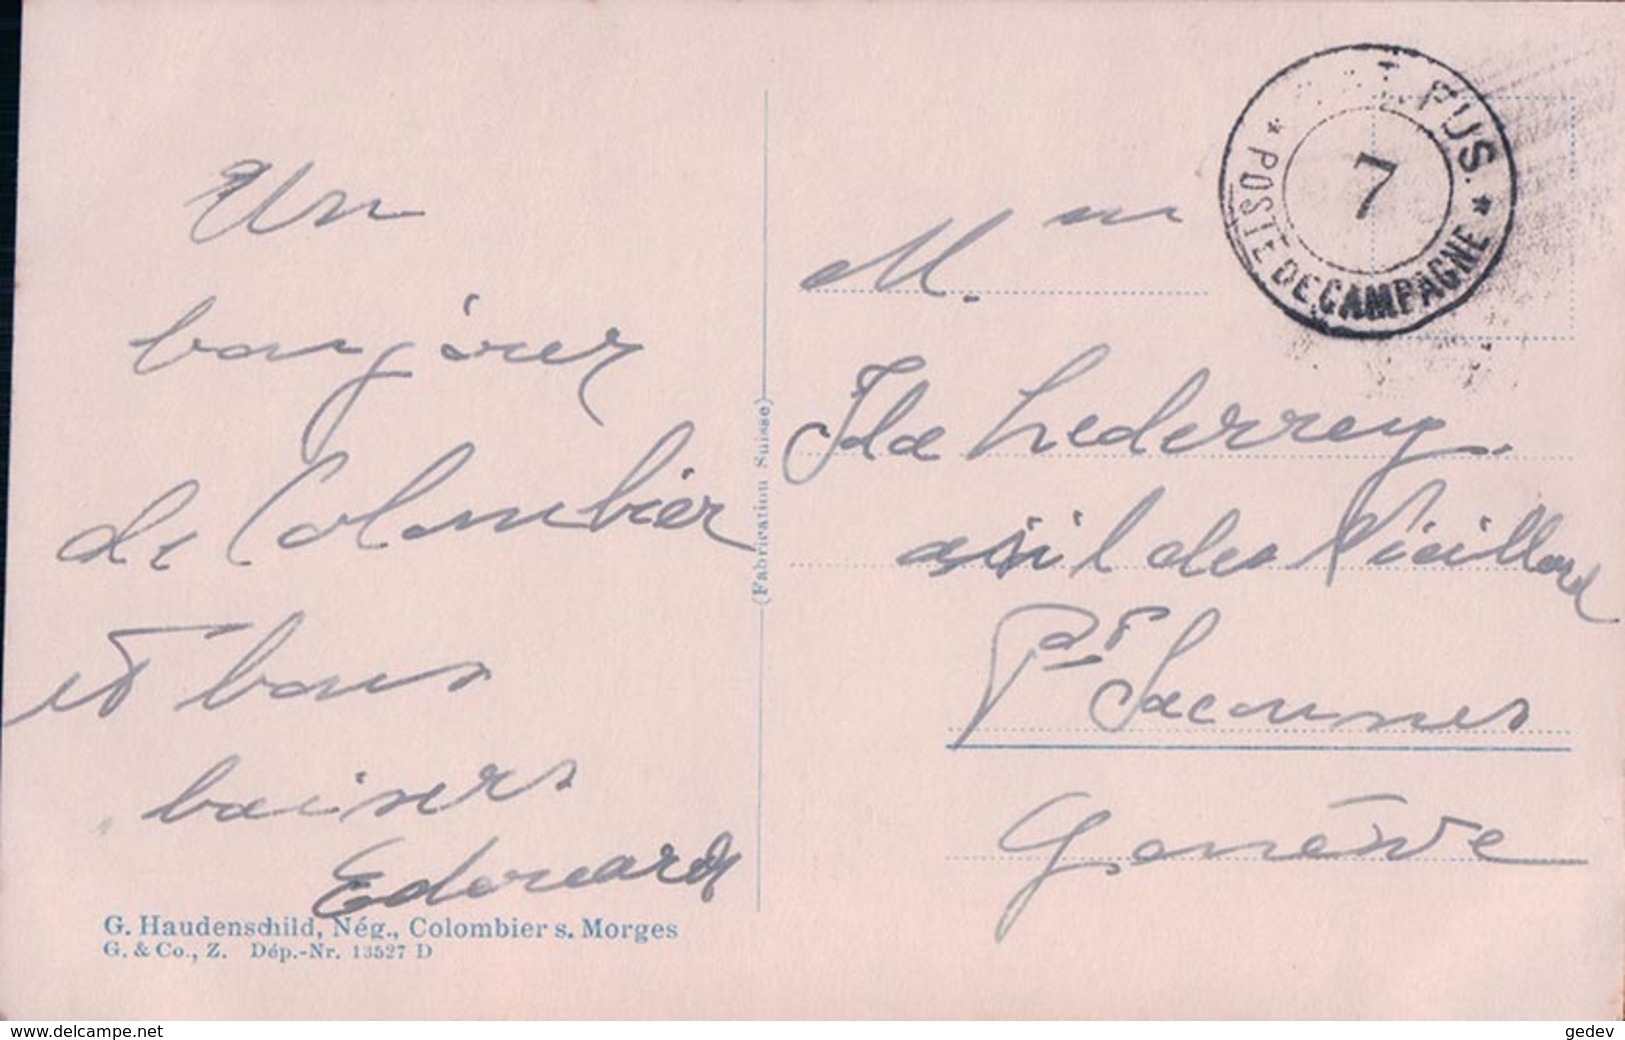 Un
bonjour
de Colombier
et bons
baisers
Edouard
G. Haudenschild, Nég., Colombier s. Morges
G. & Co., Z. Dép.-Nr. 13527 D
(Fabrication Suisse)
FUS. 7
* POSTE DE CAMPAGNE *
M.me
Ida Lederrey
asil des Vieillard
Pt Saconnex
Genève
www.delcampe.net
gedev